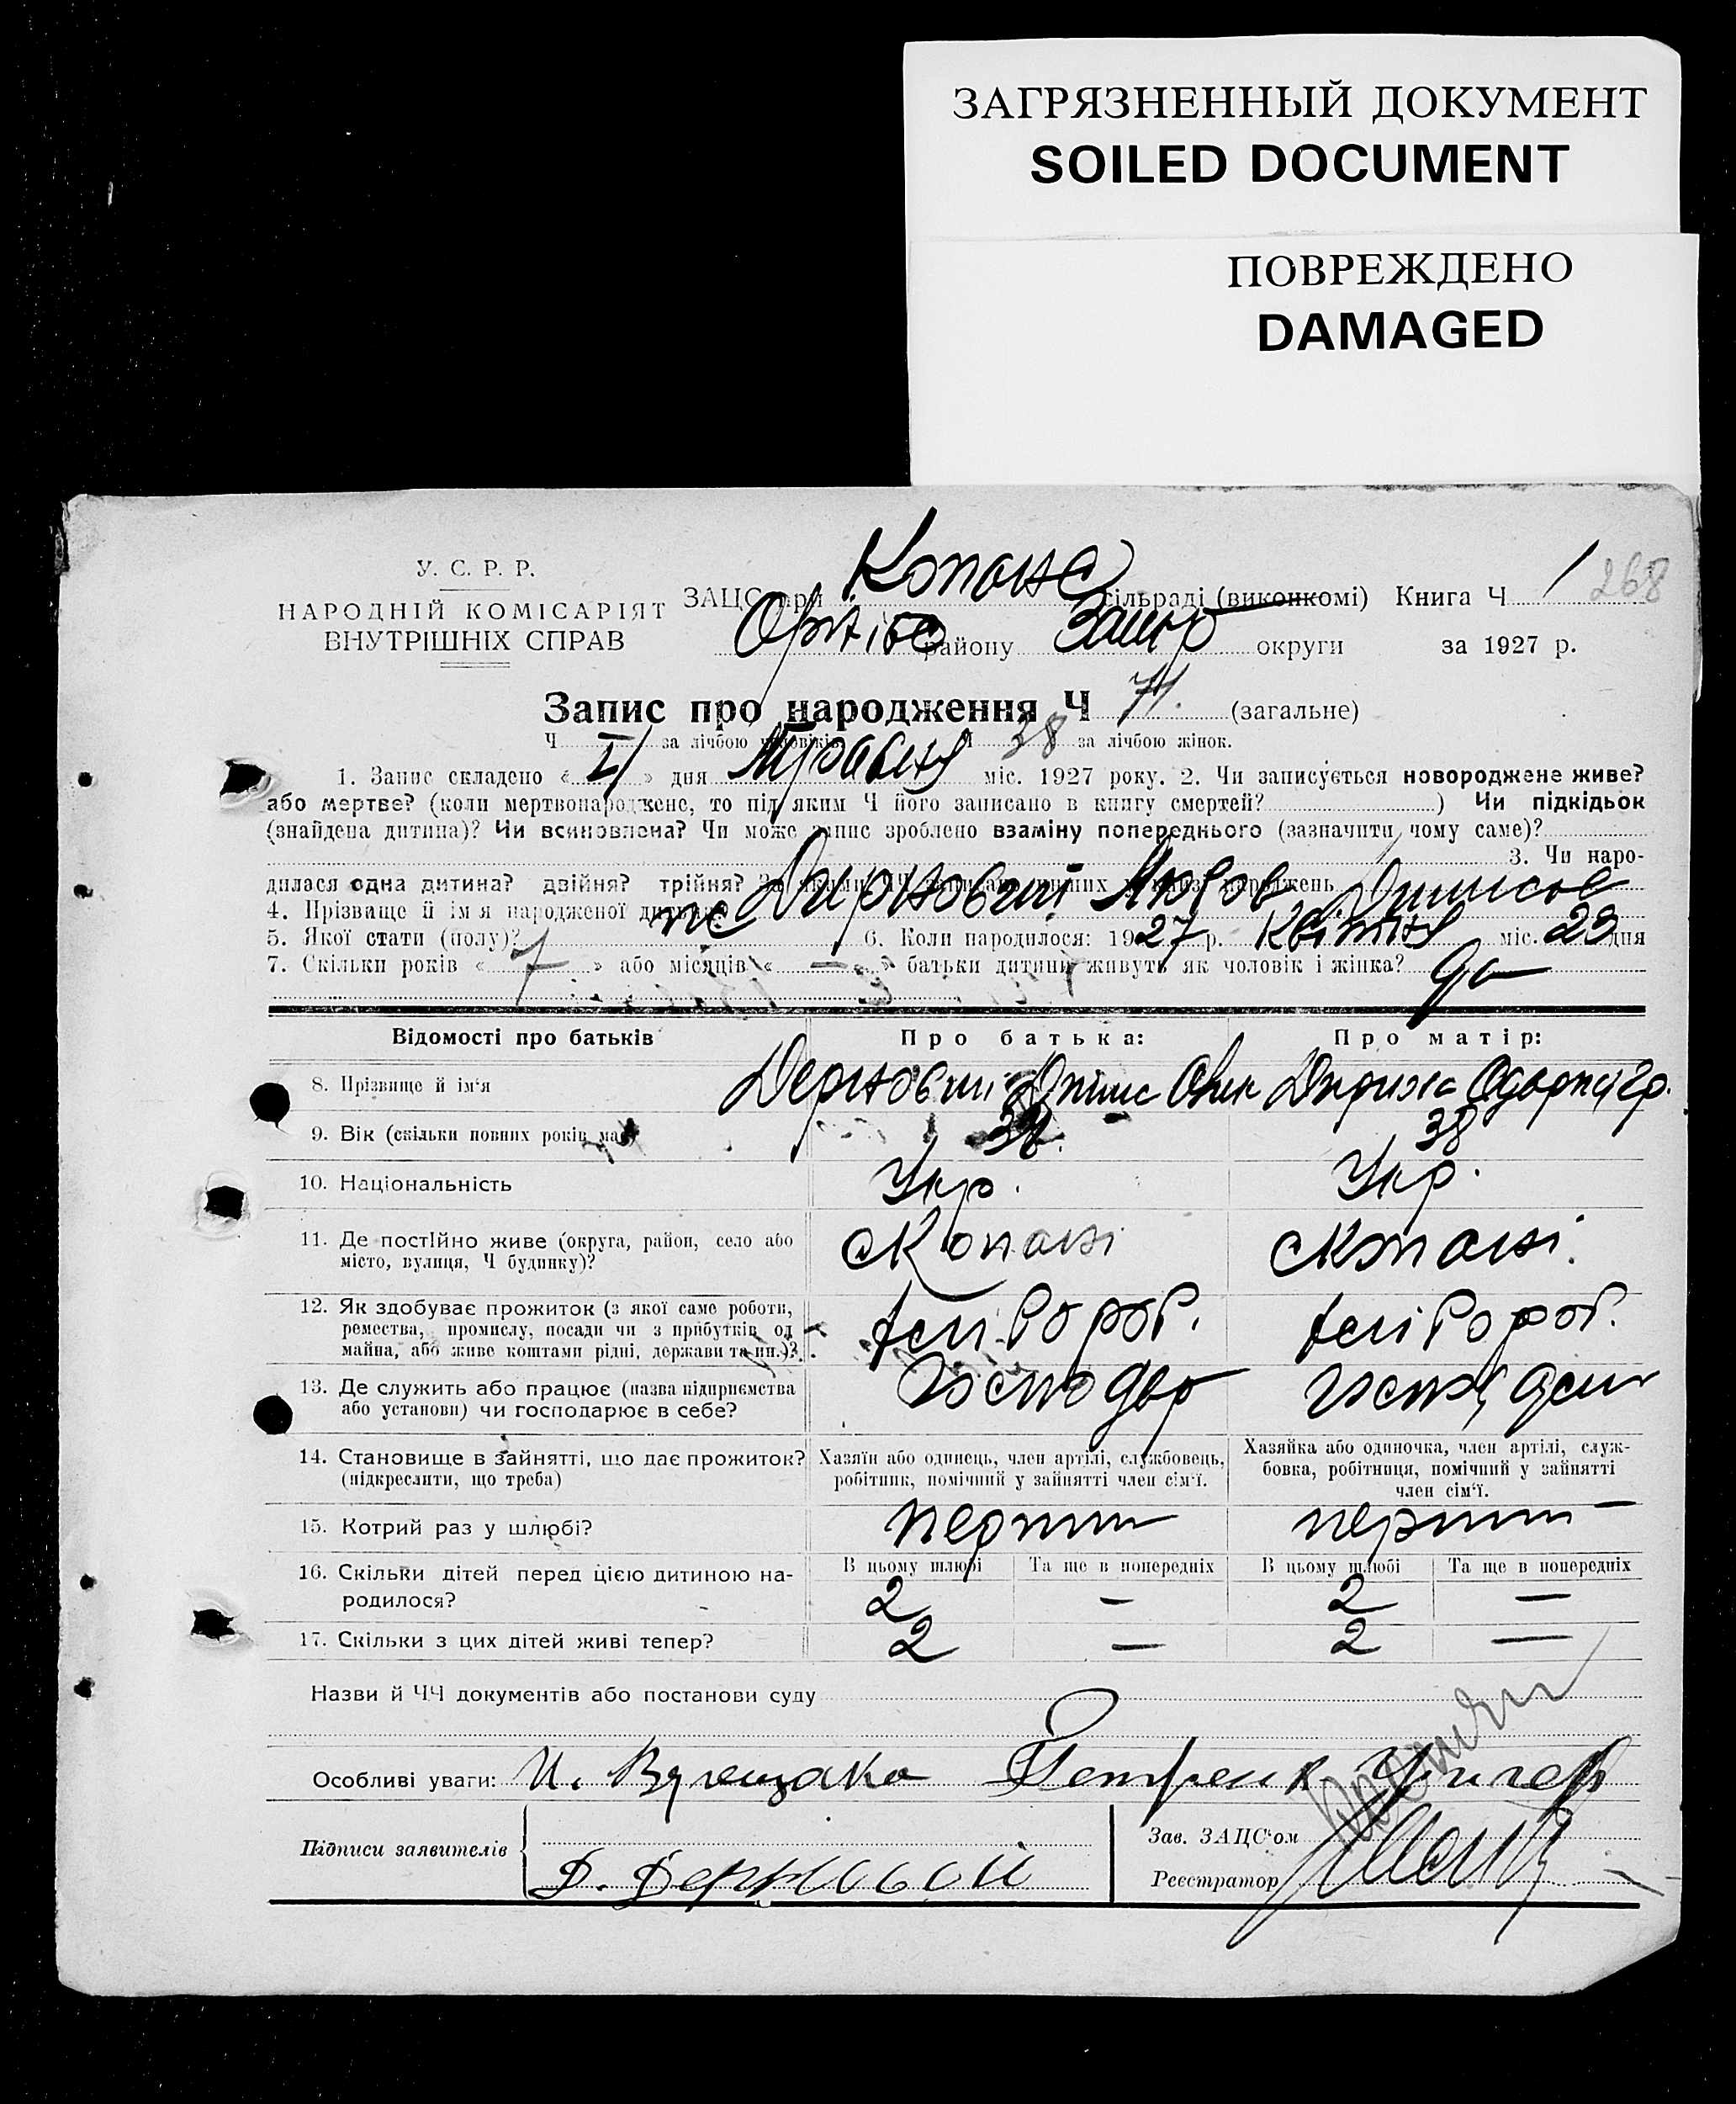 ЗАГРЯЗНЕННЫЙ ДОКУМЕНТ
SOILED DOCUMENT
ПОВРЕЖДЕНО
DAMAGED
У. С. Р. Р.
НАРОДНІЙ КОМІСАРІЯТ
ВНУТРІШНІХ СПРАВ
ЗАЦС при Копанс сільраді (виконкомі) Книга Ч 1 268
Оріхівс району Запор округи за 1927 р.
Запис про народження Ч 71. (загальне)
Ч за лічбою чоловіків Ч 38 за лічбою жінок.
1. Запис складено « » дня Травня міс. 1927 року. 2. Чи записується новороджене живе?
або мертве? (коли мертвонароджене, то під яким Ч його записано в книгу смертей? ) Чи підкідьок
(знайдена дитина)? Чи всиновлена? Чи може запис зроблено взаміну попереднього (зазначити чому саме)?
3. Чи наро-
дилася одна дитина? двійня? трійня? За якими ЧЧ записано инших у книзі народжень
4. Прізвище й ім'я народженої дитини? Держовий Любов Динисов
5. Якої стати (полу)? же 6. Коли народилося: 1927 р. Квітня міс. 29 дня
7. Скільки років « 7 » або місяців « — » батьки дитини живуть як чоловік і жінка? да
Відомості про батьків Про батька: Про матір:
8. Прізвище й ім'я Держовий Динис
9. Вік (скільки повних років має) 38
10. Національність Укр. Укр.
11. Де постійно живе (округа, район, село або
місто, вулиця, Ч будинку)? с Копані с Копані.
12. Як здобуває прожиток (з якої саме роботи,
ремества, промислу, посади чи з прибутків од
майна, або живе коштами рідні, держави та ин.)? хліборроб. хлібороб.
13. Де служить або працює (назва підприємства
або установи) чи господарює в себе?
14. Становище в зайнятті, що дає прожиток? Хазяїн або одинець, член артілі, службовець, Хазяйка або одиночка, член артілі, служ-
(підкреслити, що треба) робітник, помічний у зайнятті член сім'ї. бовка, робітниця, помічний у зайнятті
член сім'ї.
15. Котрий раз у шлюбі? первий первий
16. Скільки дітей перед цією дитиною на- В цьому шлюбі Та ще в попередніх В цьому шлюбі Та ще в попередніх
родилося? 2 — 2 —
17. Скільки з цих дітей живі тепер? 2 — 2 —
Назви й ЧЧ документів або постанови суду
Особливі уваги:
Підписи заявителів Д. Держовой
Зав. ЗАЦС'ом
Реєстратор